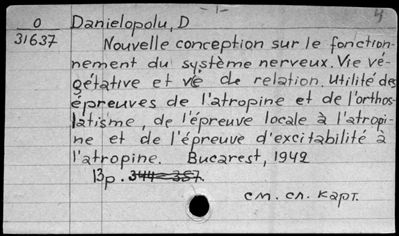 - 1 -
4
0 Danielopolu, D
31637
Nouvelle conception sur le fonction-
nement du système nerveux. Vie vé-
gétative et vie de relation. Utilité des
épreuves de l'atropine et de l'orthos-
latisme, de l'épreuve locale à l'atropi-
ne et de l'épreuve d'excitabilité à
l'atropine. Bucarest, 1942
13p. 344-357.
см. сл. карт.